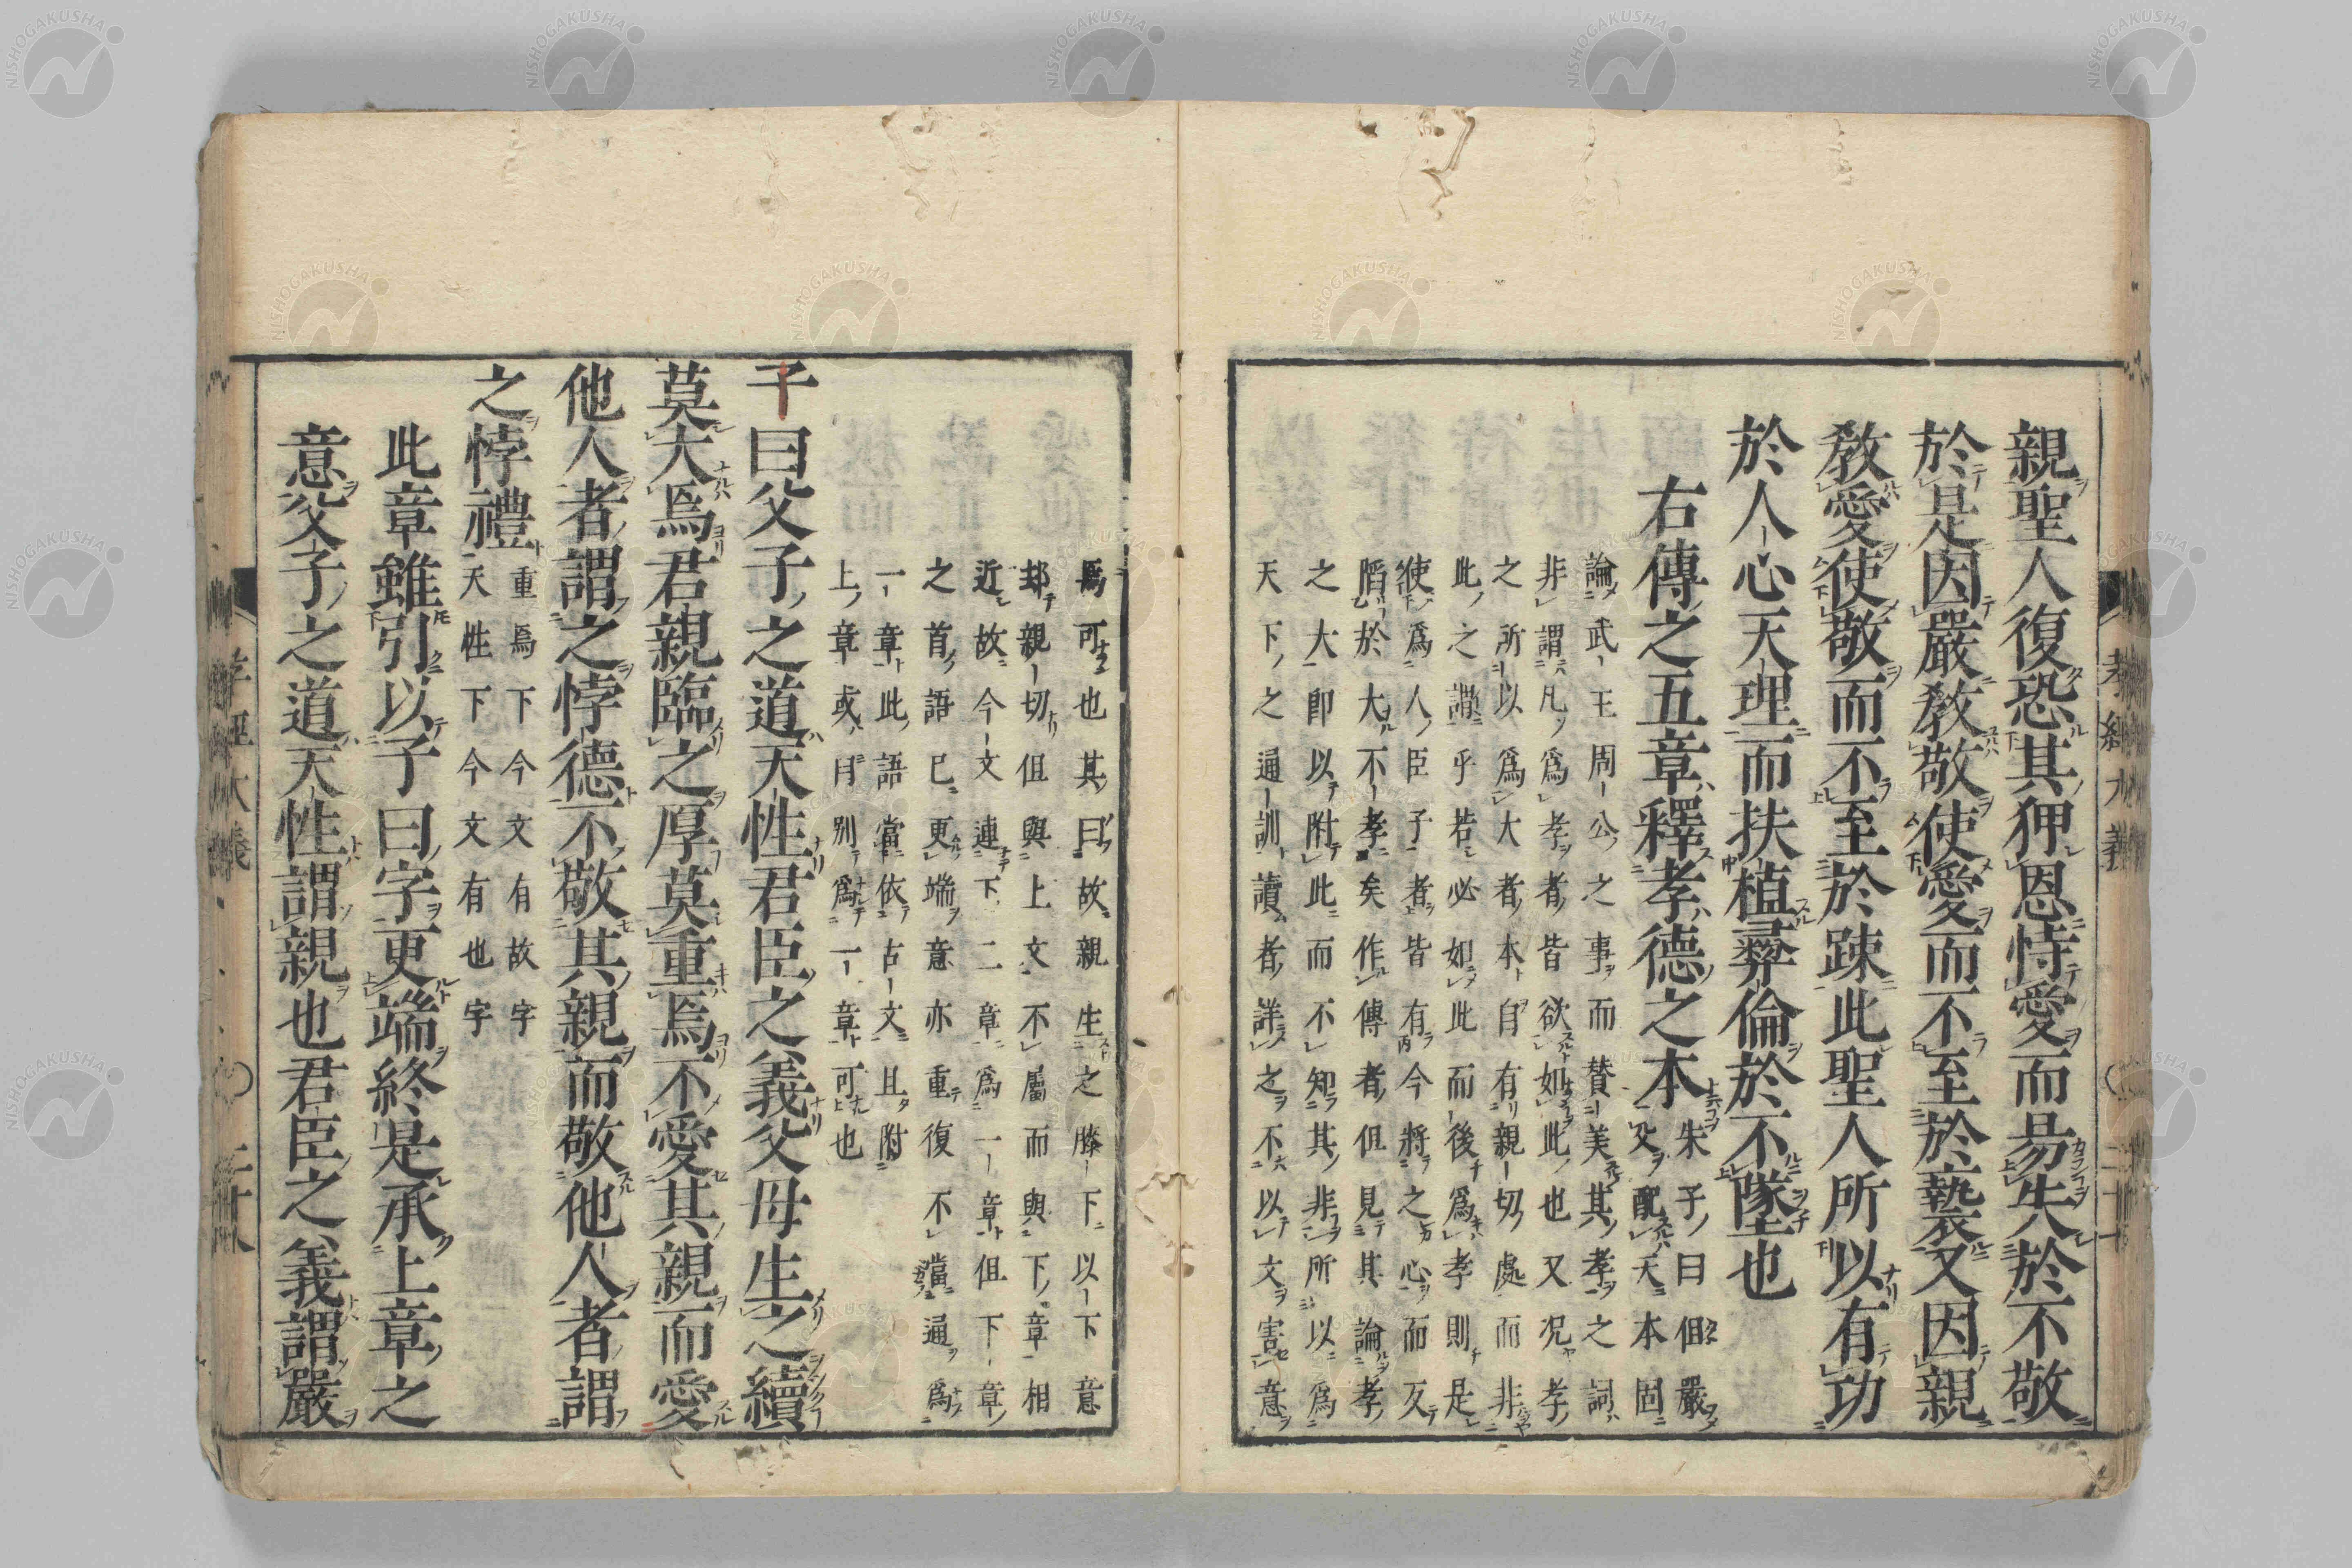 親聖人復恐其狎恩恃愛而易失於不敬
於是因嚴敎敬使愛而不至於褻又因親
敎愛使敬而不至於疎此聖人所以有功
於人心天理而扶植彞倫於不墜也
右傳之五章釋孝德之本
朱子曰但嚴
父配天本固
論武王周公之事而賛美其孝之詞
非謂凡爲孝者皆欲如此也又况孝
之所以爲大者本自有親切處而非
此之謂乎若必如此而後爲孝則是
使爲人臣子者皆有今將之心而反
陷於大不孝矣作傳者但見其論孝
之大卽以附此而不知其非所以爲
天下之通訓讀者詳之不以文害意
焉可也其曰故親生之膝下以下意
却親切但與上文不屬而與下章相
近故今文連下二章爲一章但下章
之首語已更端意亦重復不當通爲
一章此語當依古文且附
上章或自別爲一章可也
子曰父子之道天性君臣之義父母生之續
莫大焉君親臨之厚莫重焉不愛其親而愛
他人者謂之悖德不敬其親而敬他人者謂
之悖禮
重焉下今文有故字
天性下今文有也字
此章雖引以子曰字更端終是承上章之
意父子之道天性謂親也君臣之義謂嚴
孝經大義
二十
NISHOGAKUSHA